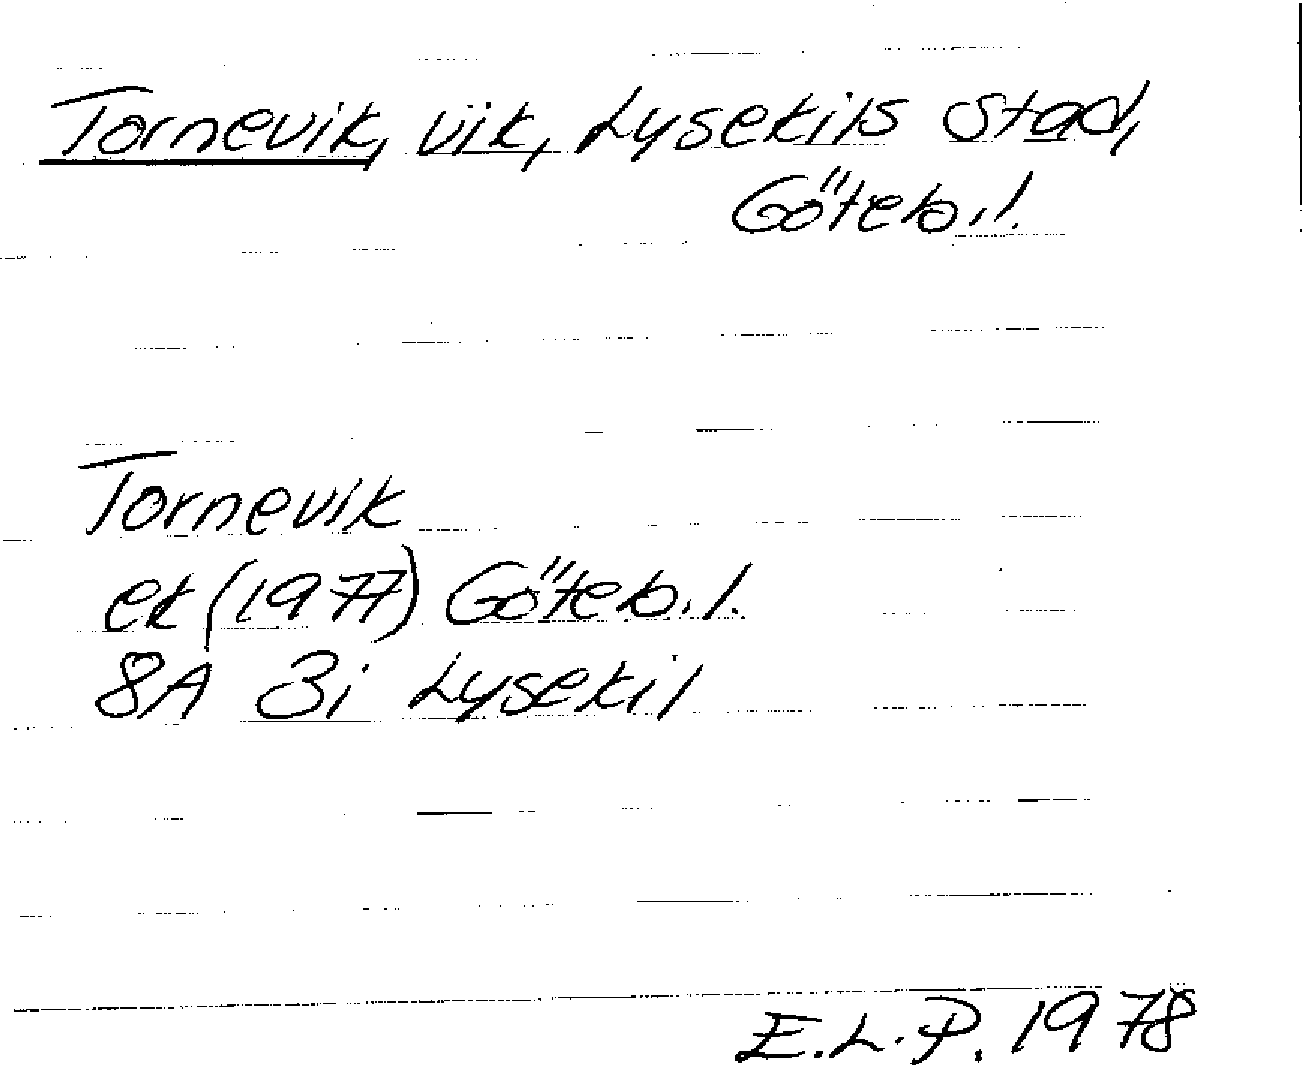 Tornevik, vik, Lysekils stad,
Göteb.l.
Tornevik
ek (1977) Göteb.l.
8A 3i Lysekil
E.L.P. 1978